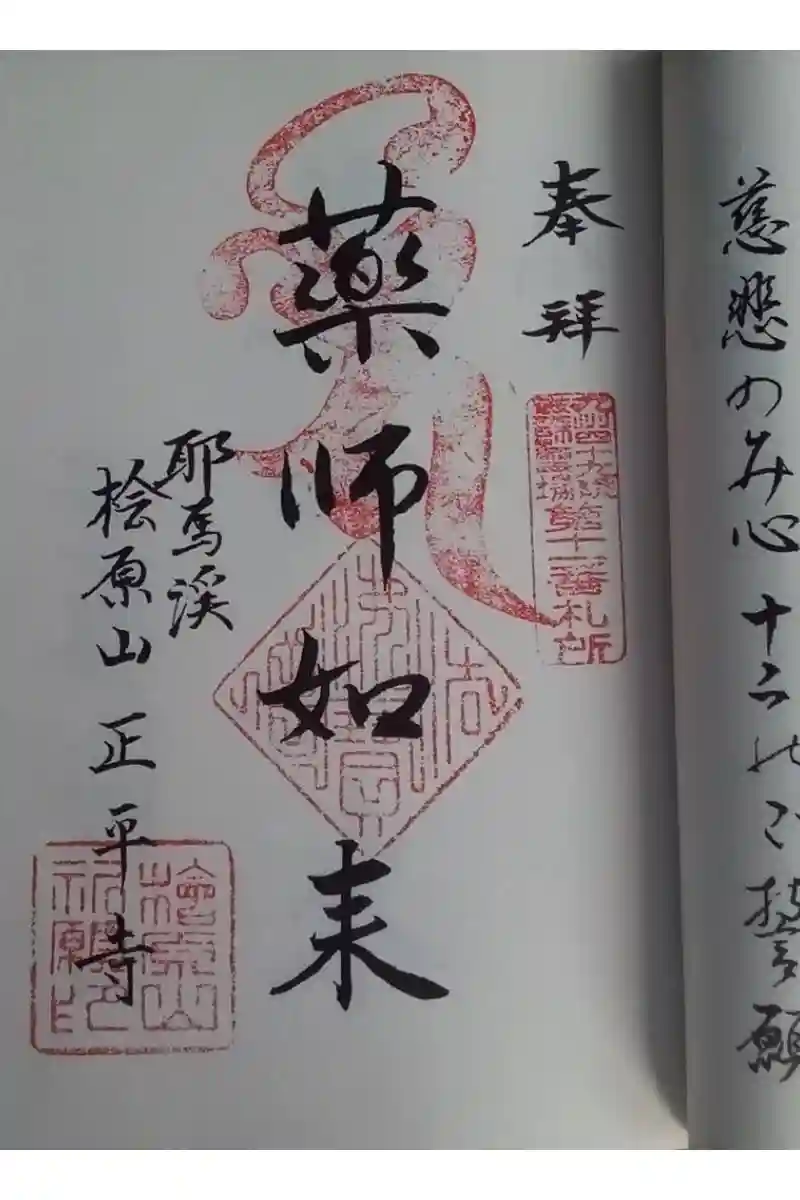 慈悲のみ心 十二のご誓願
奉拝
九州四十九院
薬師霊場
第十二番札所
薬師如来
耶馬渓
桧原山 正平寺
檜原山
祈願印